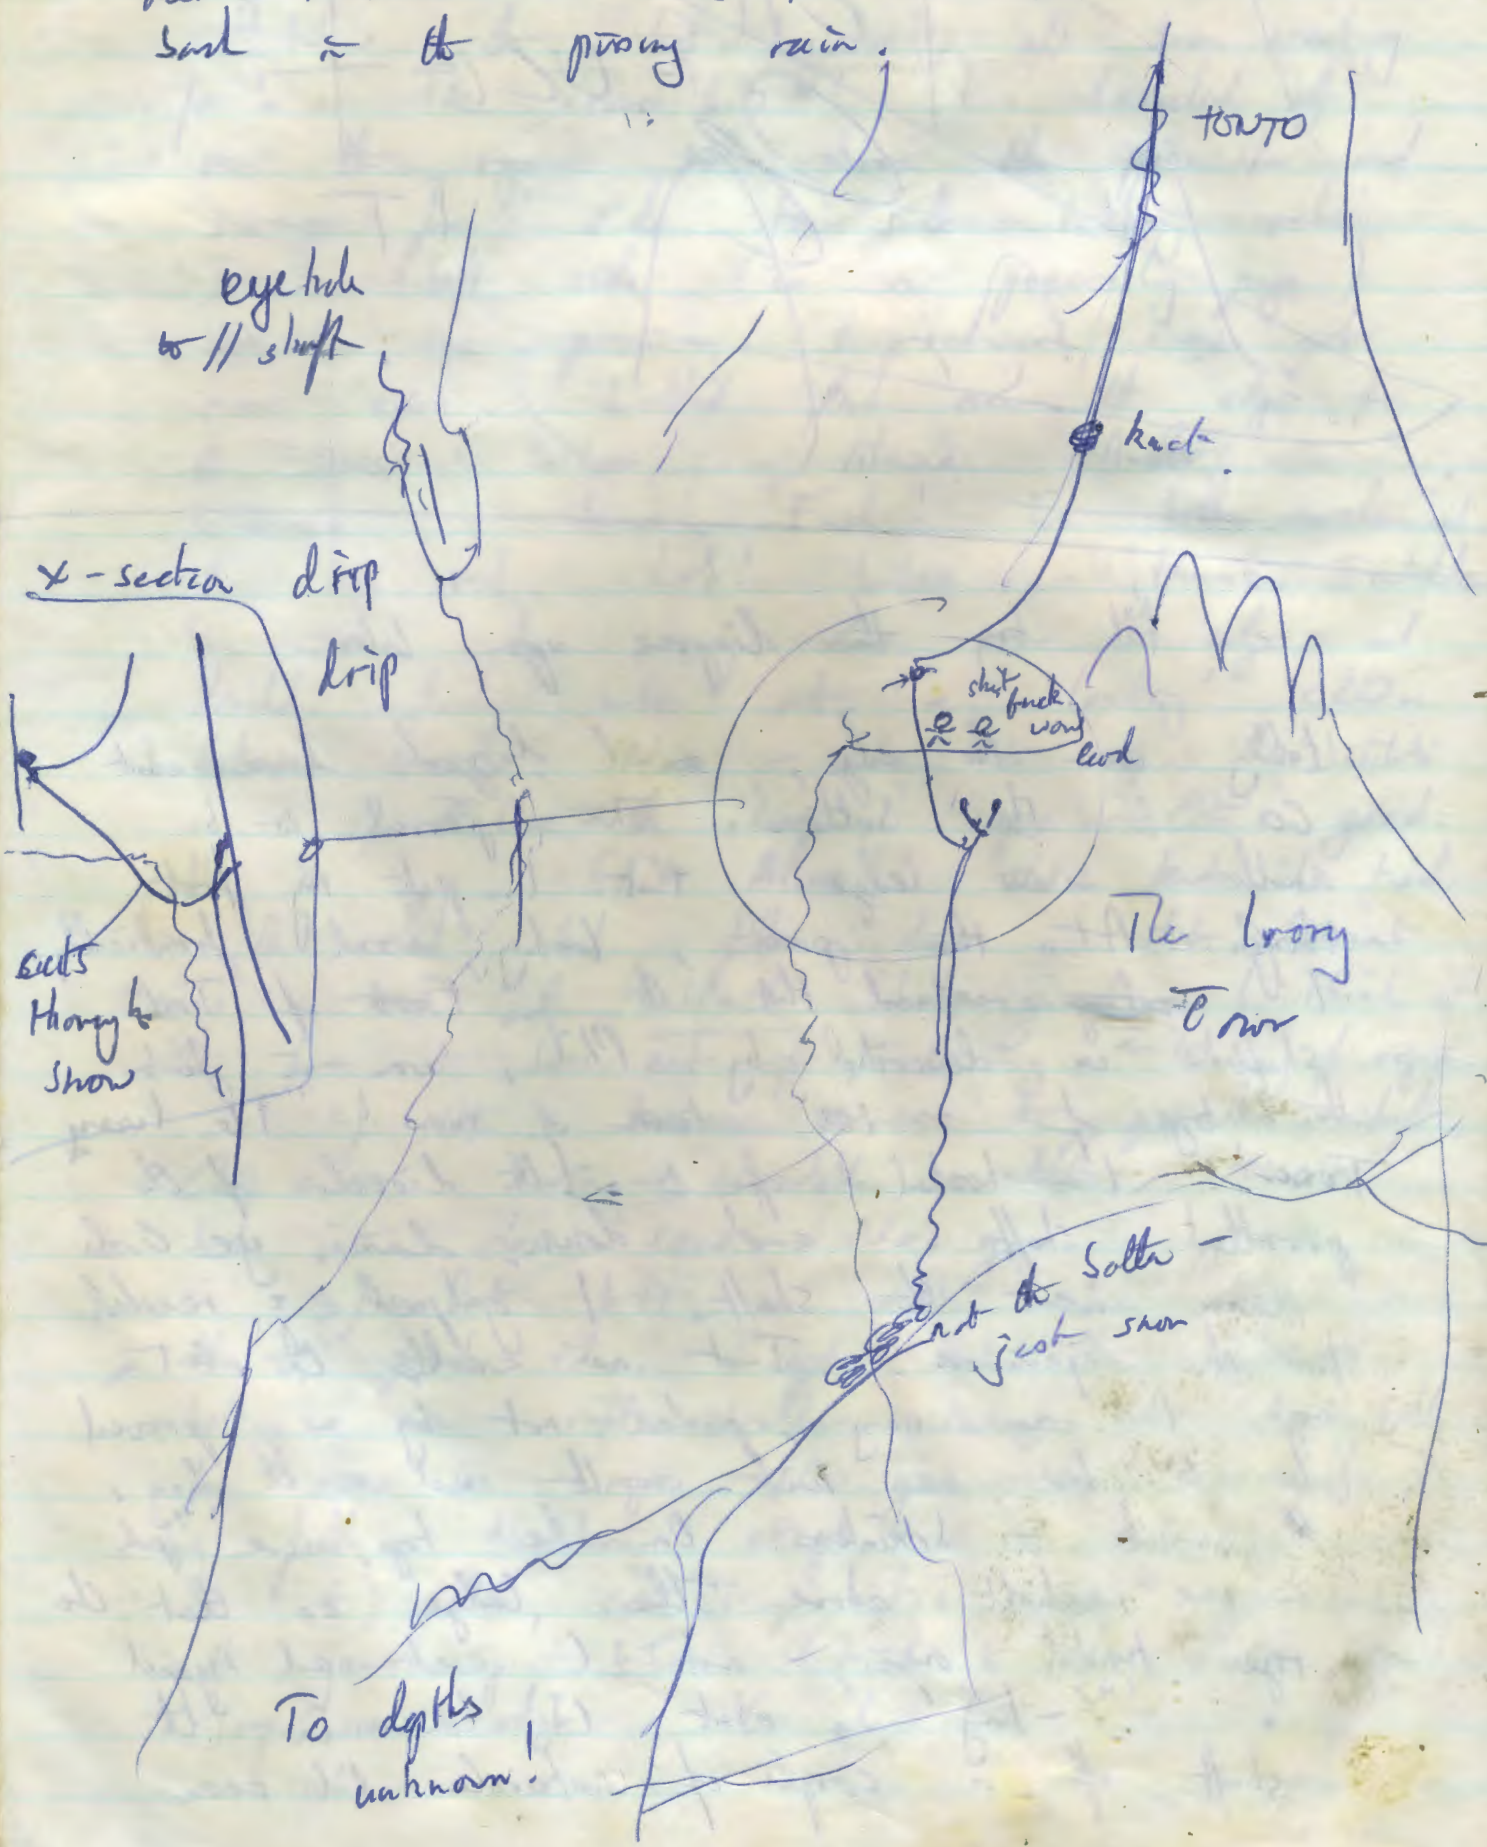 back in the pissing rain.
TONTO
eyehole
to // shaft
knot.
x-section
drip
drip
shit
fuck
wow
The Ivory
Tower
cuts
through
snow
not the bottom -
just snow
To depths
unknown!